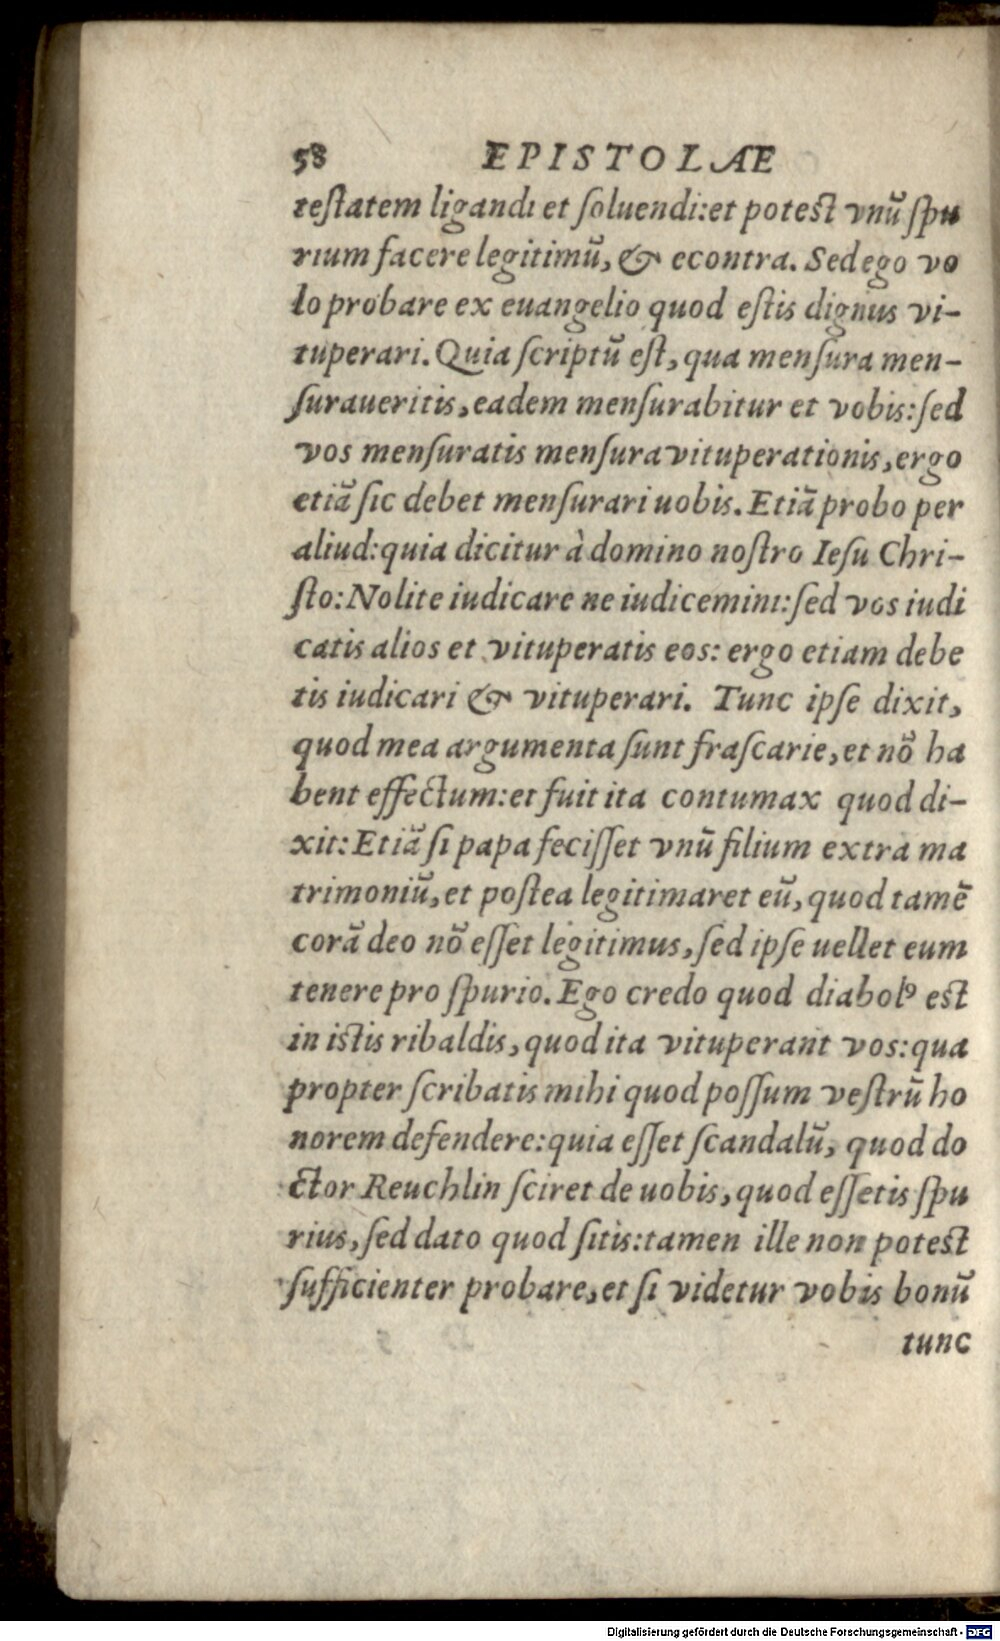 58 EPISTOLAE
teſtatem ligandi et ſoluendi:et poteſt vnũ ſpu
rium facere legitimũ, & econtra. Sed ego vo
lo probare ex euangelio quod eſtis dignus vi-
tuperari. Quia ſcriptũ eſt, qua menſura men-
ſuraueritis, eadem menſurabitur et vobis: ſed
vos menſuratis menſura vituperationis, ergo
etiã ſic debet menſurari uobis. Etiã probo per
aliud: quia dicitur à domino noſtro Ieſu Chri-
ſto: Nolite iudicare ne iudicemini: ſed vos iudi
catis alios et vituperatis eos: ergo etiam debe
tis iudicari & vituperari. Tunc ipſe dixit,
quod mea argumenta ſunt fraſcarie, et nõ ha
bent effectum: et fuit ita contumax quod di-
xit: Etiã ſi papa feciſſet vnũ filium extra ma
trimoniũ, et poſtea legitimaret eũ, quod tamẽ
corã deo nõ eſſet legitimus, ſed ipſe uellet eum
tenere pro ſpurio. Ego credo quod diabolꝰ eſt
in iſtis ribaldis, quod ita vituperant vos: qua
propter ſcribatis mihi quod poſſum veſtrũ ho
norem defendere: quia eſſet ſcandalũ, quod do
ctor Reuchlin ſciret de uobis, quod eſſetis ſpu
rius, ſed dato quod ſitis: tamen ille non poteſt
ſufficienter probare, et ſi videtur vobis bonũ
tunc
Digitalisierung gefördert durch die Deutsche Forschungsgemeinschaft - DFG